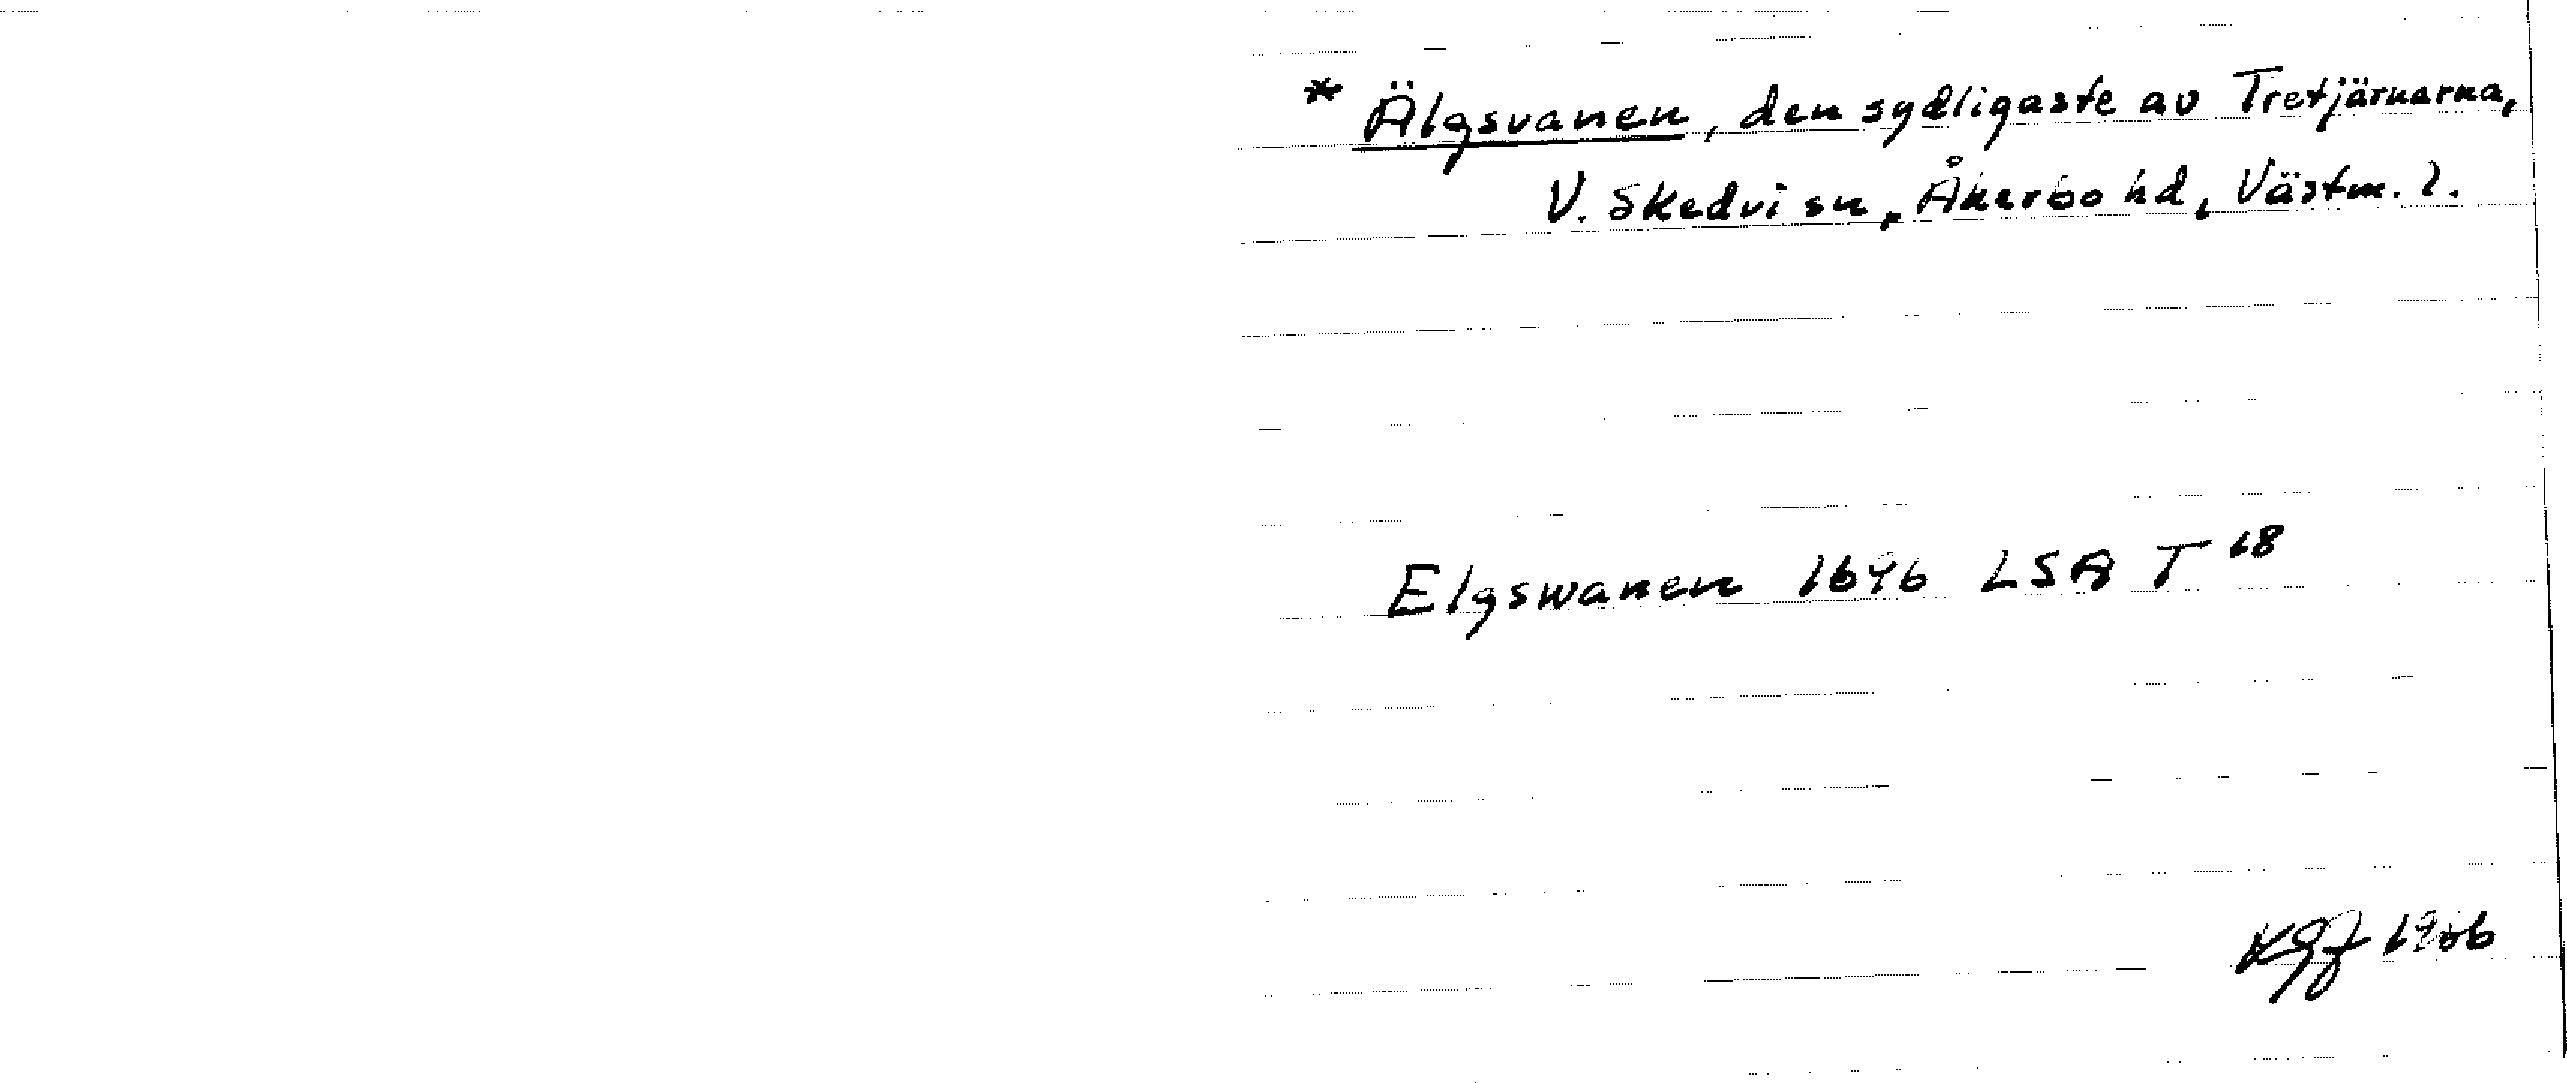 * Älgsvanen, den sydligaste av Tretjärnarna,
V. Skedvi sn, Åkerbo hd, Västm. l.
Elgswanen 1696 LSA T 18